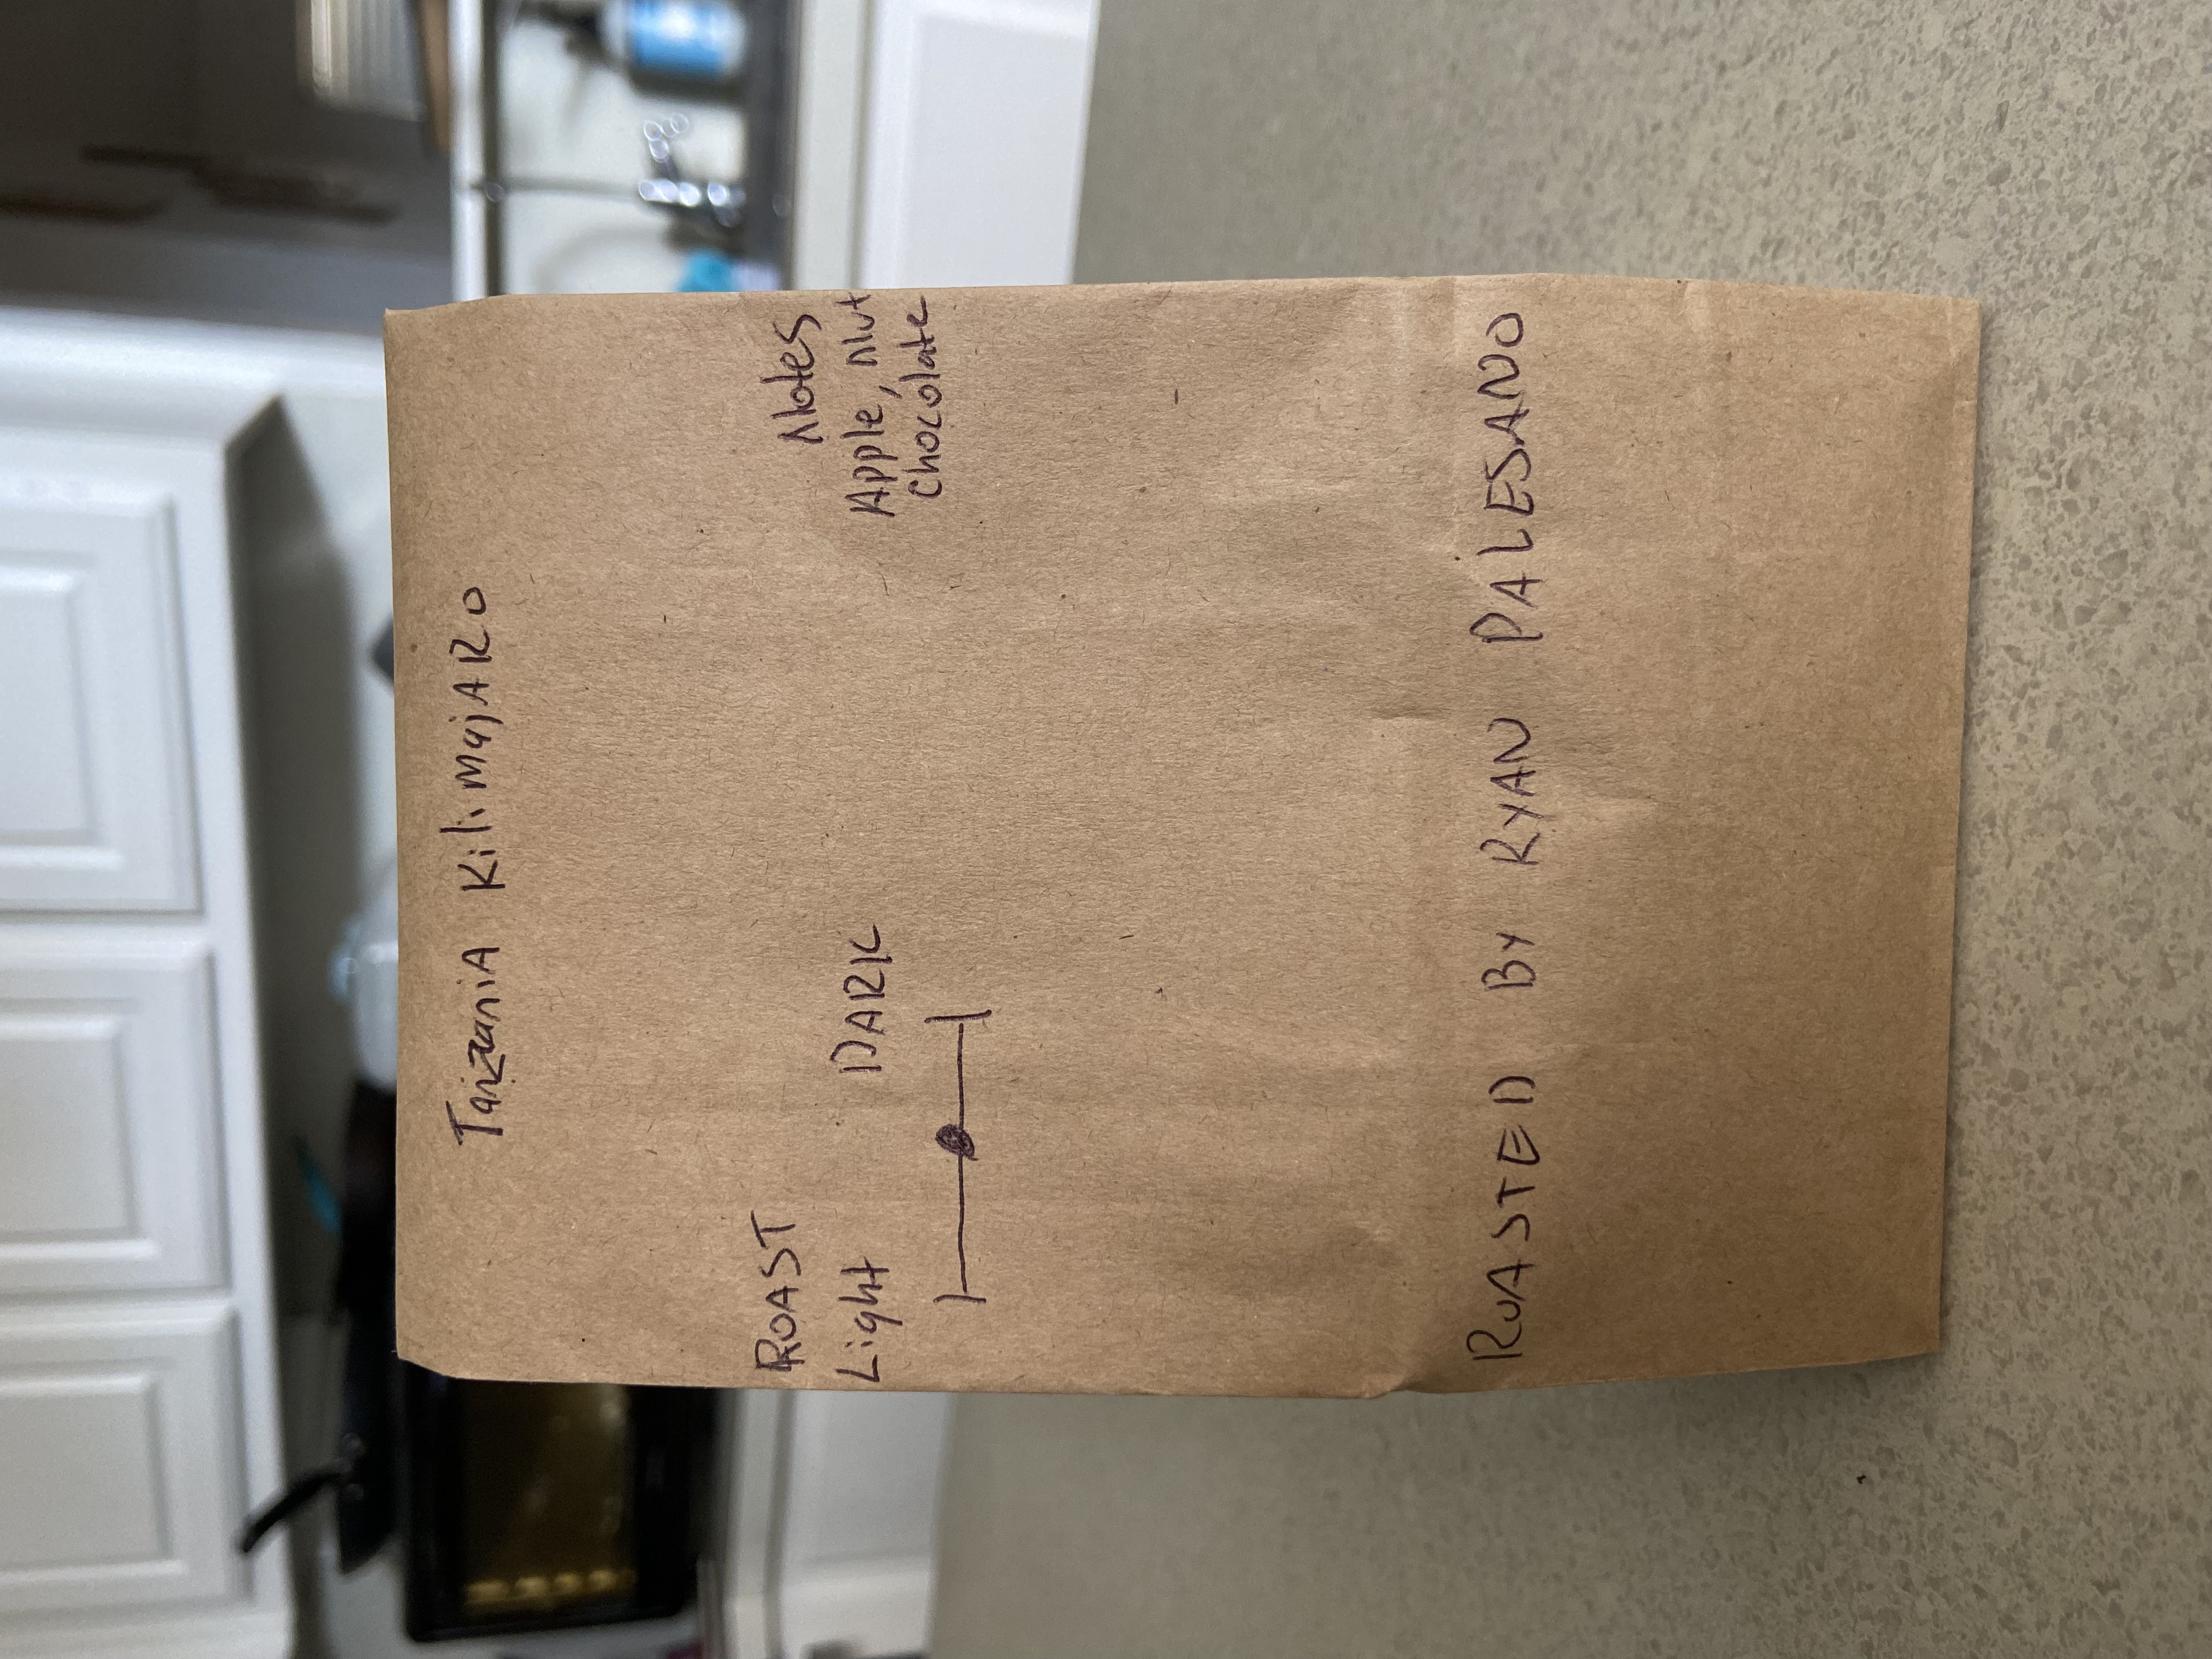 Tanzania KiliMajARo
ROAST
Light DARK
Notes
Apple, Nut
Chocolate
ROASTED BY RYAN PALESANO